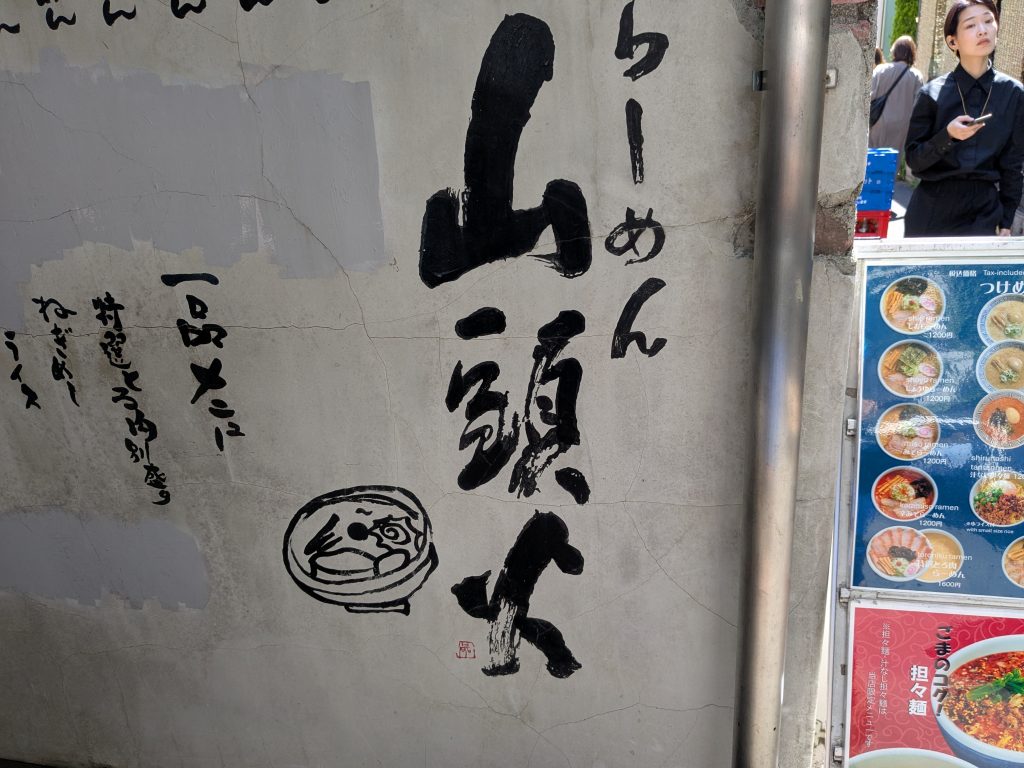 らーめん
山頭火
一品メニュー
特選とろ肉別盛り
ねぎめし
ライス
税込価格 Tax-include
つけめ
shio ramen
しおらーめん
1200円
shoyu ramen
しょうゆらーめん
1200円
みそらーめん
1200円
karamiso ramen
辛みそらーめん
1200円
toroniku ramen
特選とろ肉
らーめん
1600円
shirunashi
tantanmen
汁なし担々麺
with small size rice
ごまのコク!
担々麺
※担々麺・汁なし担々麺は、
当店限定メニューです